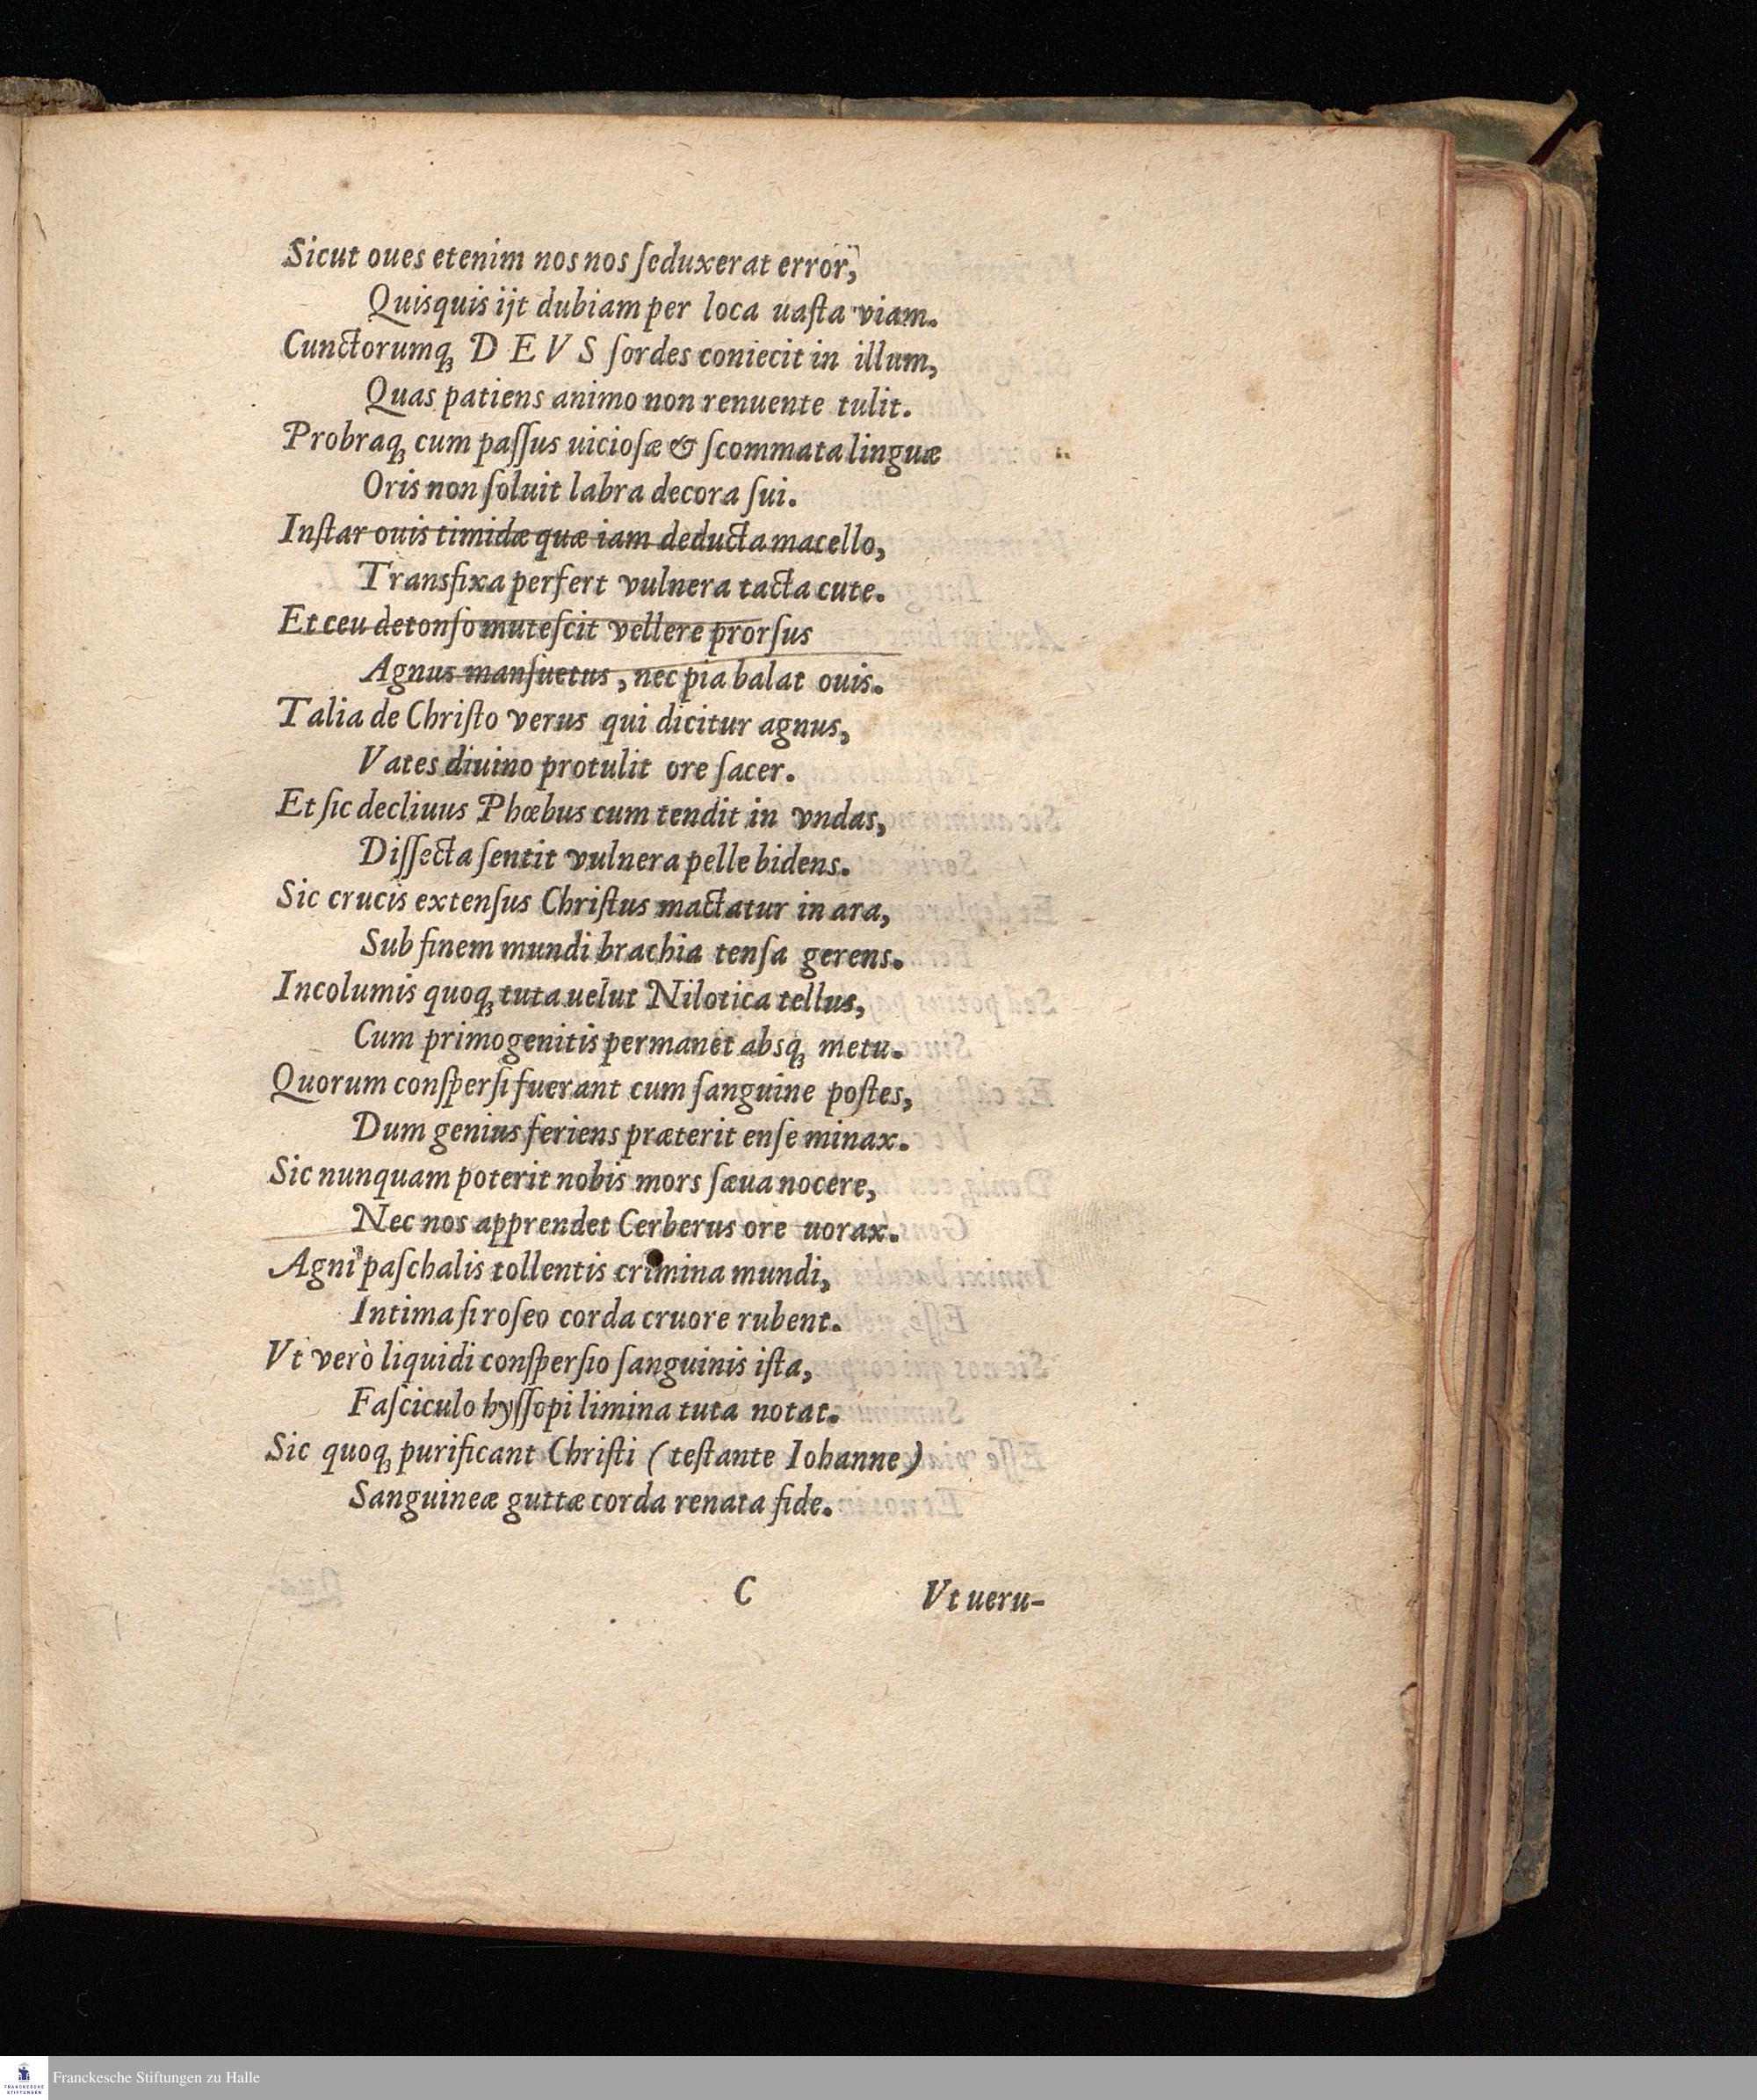 Sicut oues etenim nos nos ſeduxerat error,
Quisquis ijt dubiam per loca uaſta viam.
Cunctorumq; DEVS ſordes coniecit in illum,
Quas patiens animo non renuente tulit.
Probraq; cum paſſus uicioſæ & ſcommata linguæ
Oris non ſoluit labra decora ſui.
Inſtar ouis timidæ quæ iam deducta macello,
Transfixa perfert vulnera tacta cute.
Et ceu detonſo muteſcit vellere prorſus
Agnus manſuetus, nec pia balat ouis.
Talia de Chriſto verus qui dicitur agnus,
Vates diuino protulit ore ſacer.
Et ſic decliuus Phœbus cum tendit in vndas,
Diſſecta ſentit vulnera pelle bidens.
Sic crucis extenſus Chriſtus mactatur in ara,
Sub finem mundi brachia tenſa gerens.
Incolumis quoq; tuta uelut Nilotica tellus,
Cum primogenitis permanet absq; metu.
Quorum conſperſi fuerant cum ſanguine poſtes,
Dum genius feriens præterit enſe minax.
Sic nunquam poterit nobis mors ſæua nocere,
Nec nos apprendet Cerberus ore uorax.
Agni paſchalis tollentis crimina mundi,
Intima ſi roſeo corda cruore rubent.
Vt verò liquidi conſperſio ſanguinis iſta,
Faſciculo hyſſopi limina tuta notat.
Sic quoq; purificant Chriſti (teſtante Iohanne)
Sanguineæ guttæ corda renata fide.
C Vt ueru-
FRANCKESCHE
STIFTUNGEN
Franckesche Stiftungen zu Halle